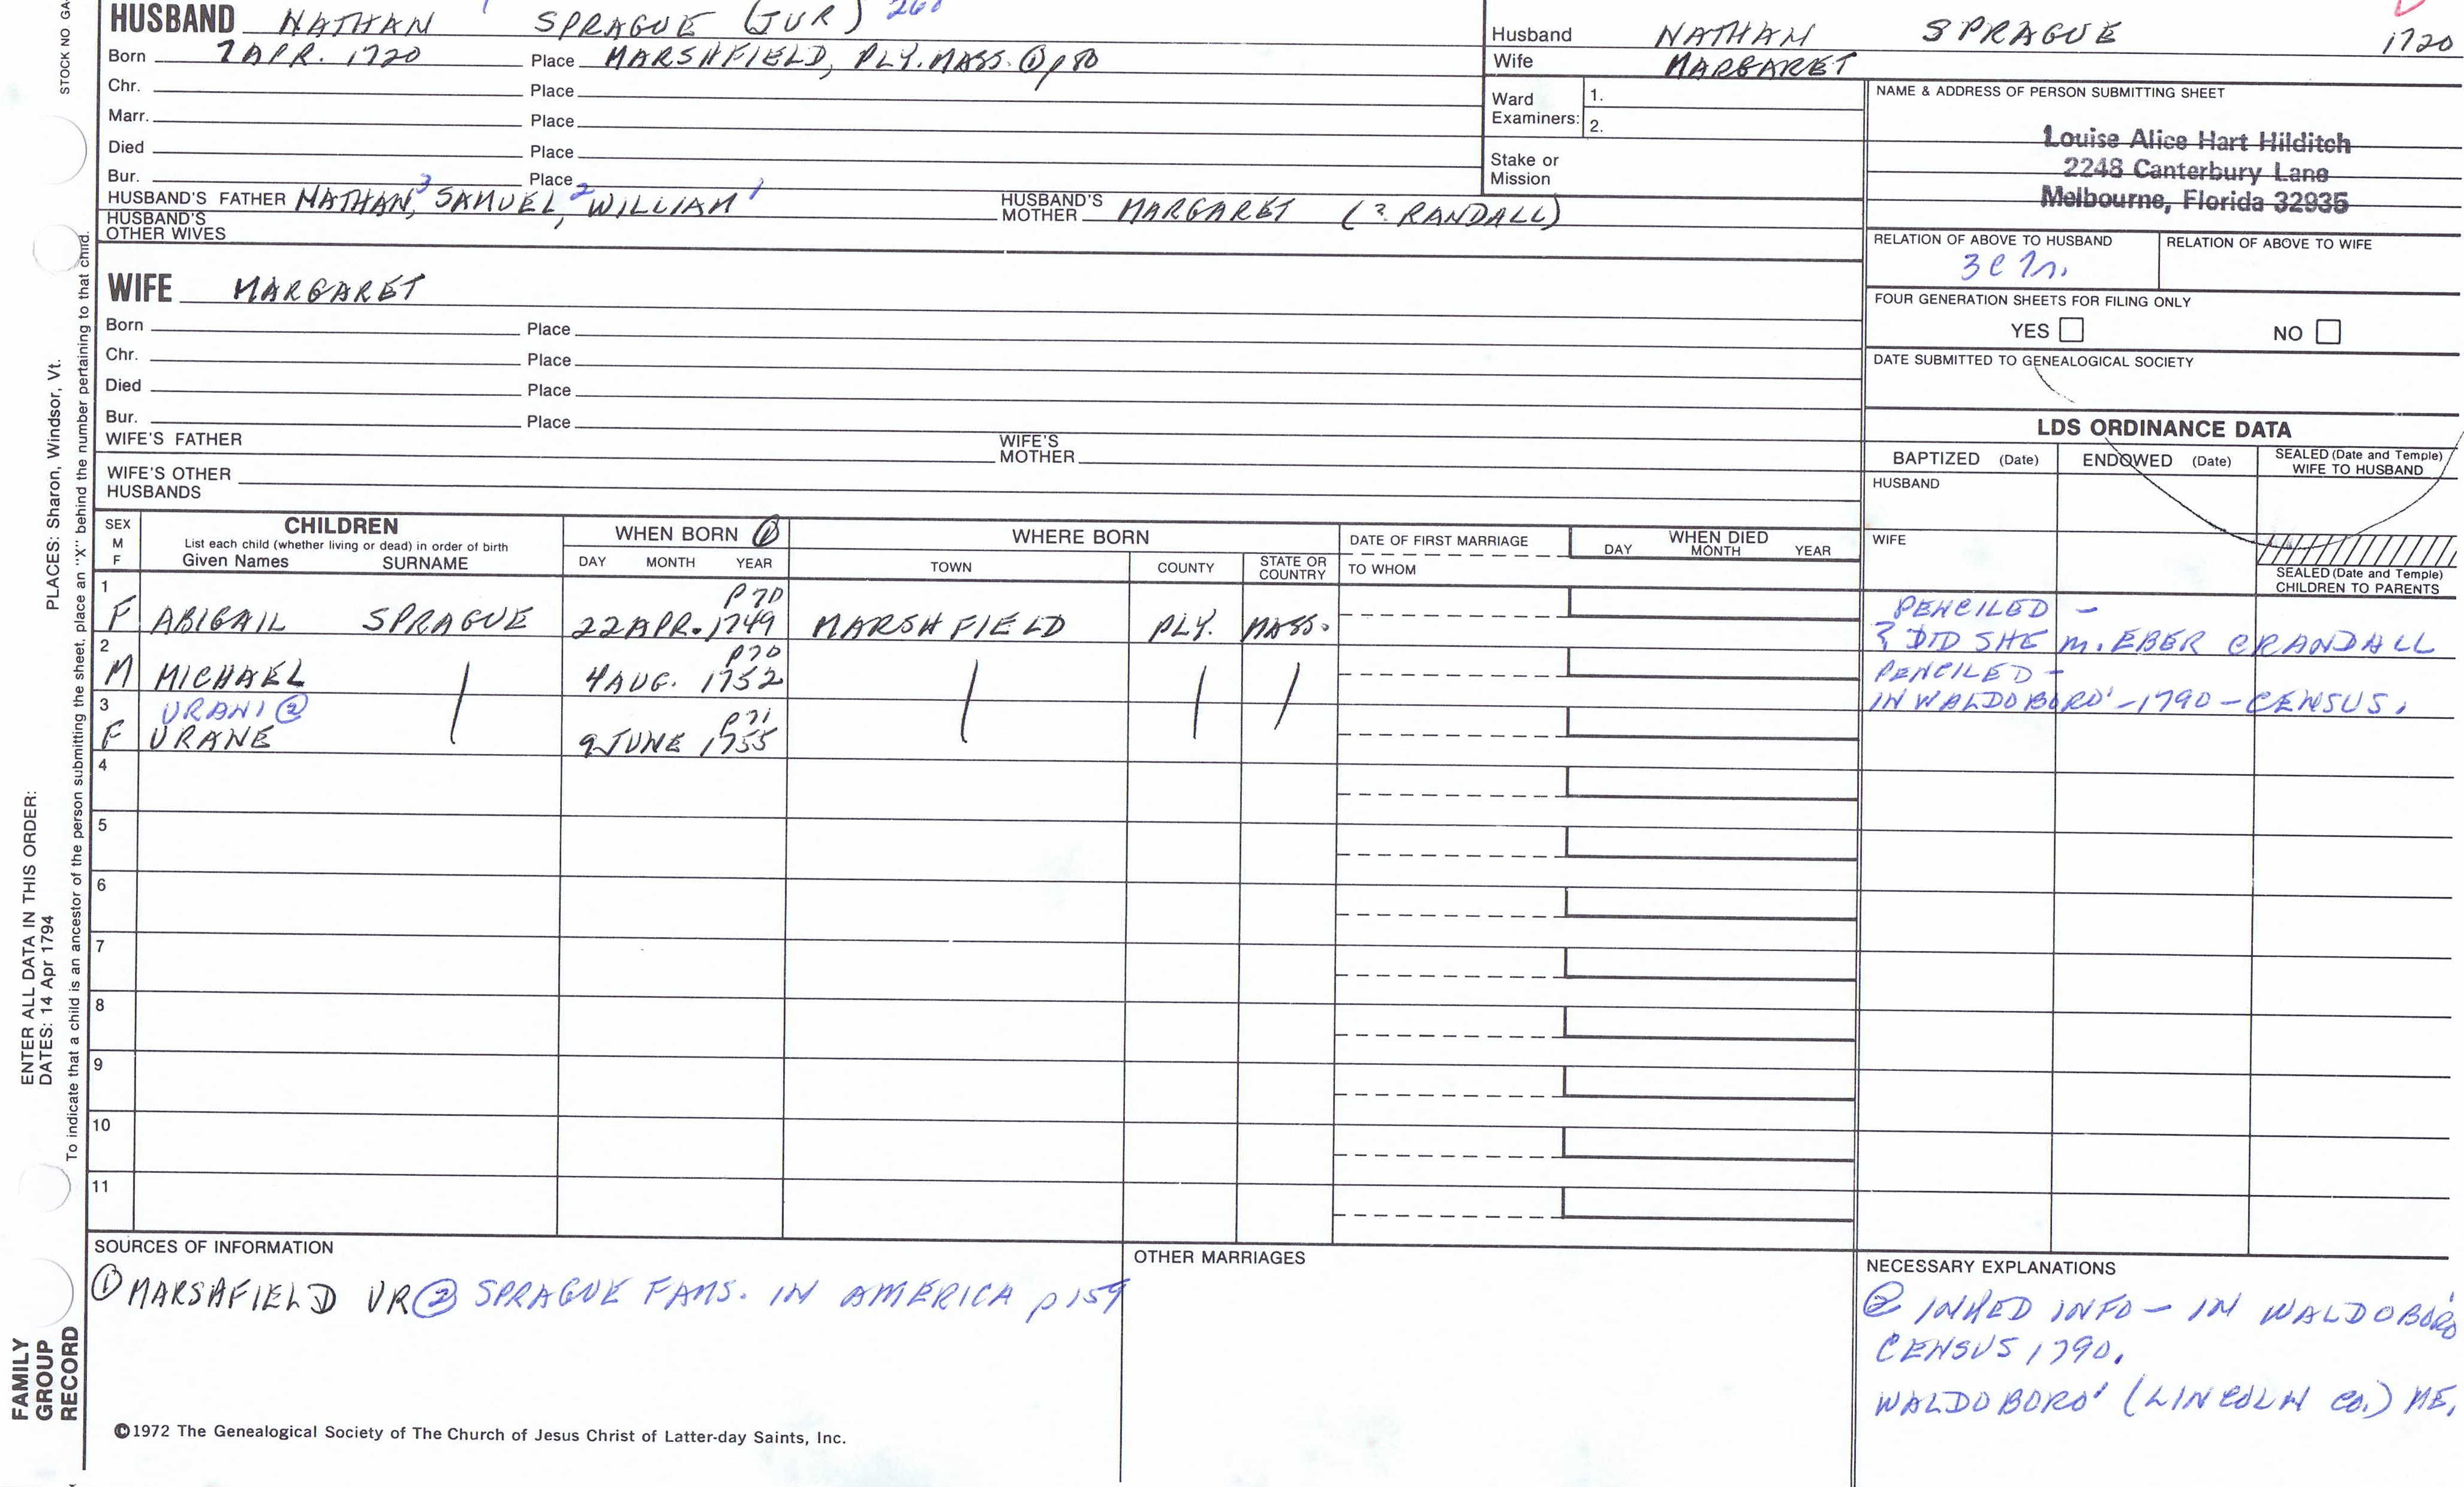 HUSBAND NATHAN SPRAGUE (JUR) 268
Born 7 APR. 1720 Place MARSHFIELD, PLY. MASS. ① p 80
Chr. Place
Marr. Place
Died Place
Bur. Place
HUSBAND'S FATHER NATHAN,³ SAMUEL,² WILLIAM¹ HUSBAND'S MOTHER MARGARET (? RANDALL)
HUSBAND'S OTHER WIVES
WIFE MARGARET
Born Place
Chr. Place
Died Place
Bur. Place
WIFE'S FATHER WIFE'S MOTHER
WIFE'S OTHER HUSBANDS
Husband NATHAN SPRAGUE 1720
Wife MARGARET
Ward Examiners: 1.
2.
Stake or Mission
NAME & ADDRESS OF PERSON SUBMITTING SHEET
Louise Alice Hart Hilditch
2248 Canterbury Lane
Melbourne, Florida 32935
RELATION OF ABOVE TO HUSBAND RELATION OF ABOVE TO WIFE
FOUR GENERATION SHEETS FOR FILING ONLY
YES NO
DATE SUBMITTED TO GENEALOGICAL SOCIETY
LDS ORDINANCE DATA
BAPTIZED (Date) ENDOWED (Date) SEALED (Date and Temple) WIFE TO HUSBAND
HUSBAND
WIFE
SEALED (Date and Temple)
CHILDREN TO PARENTS
SEX M F CHILDREN WHEN BORN ① WHERE BORN DATE OF FIRST MARRIAGE WHEN DIED
List each child (whether living or dead) in order of birth
Given Names SURNAME DAY MONTH YEAR TOWN COUNTY STATE OR COUNTRY TO WHOM DAY MONTH YEAR
1 P 70 PENCILED -
F ABIGAIL SPRAGUE 22 APR. 1749 MARSHFIELD PLY. MASS. ? DID SHE m. EBER CRANDALL
2 P 70 PENCILED -
M MICHAEL 4 AUG. 1752 IN WALDOBORO' - 1790 - CENSUS.
3 URANI ② P 71
F URANE 9 JUNE 1755
4
5
6
7
8
9
10
11
SOURCES OF INFORMATION
① MARSHFIELD VR ② SPRAGUE FAMS. IN AMERICA p 159
OTHER MARRIAGES
NECESSARY EXPLANATIONS
② INKED INFO - IN WALDOBORO
CENSUS 1790.
WALDOBORO' (LINCOLN CO.) ME,
©1972 The Genealogical Society of The Church of Jesus Christ of Latter-day Saints, Inc.
STOCK NO GA
PLACES: Sharon, Windsor, Vt.
To indicate that a child is an ancestor of the person submitting the sheet, place an "X" behind the number pertaining to that child.
ENTER ALL DATA IN THIS ORDER:
DATES: 14 Apr 1794
FAMILY
GROUP
RECORD